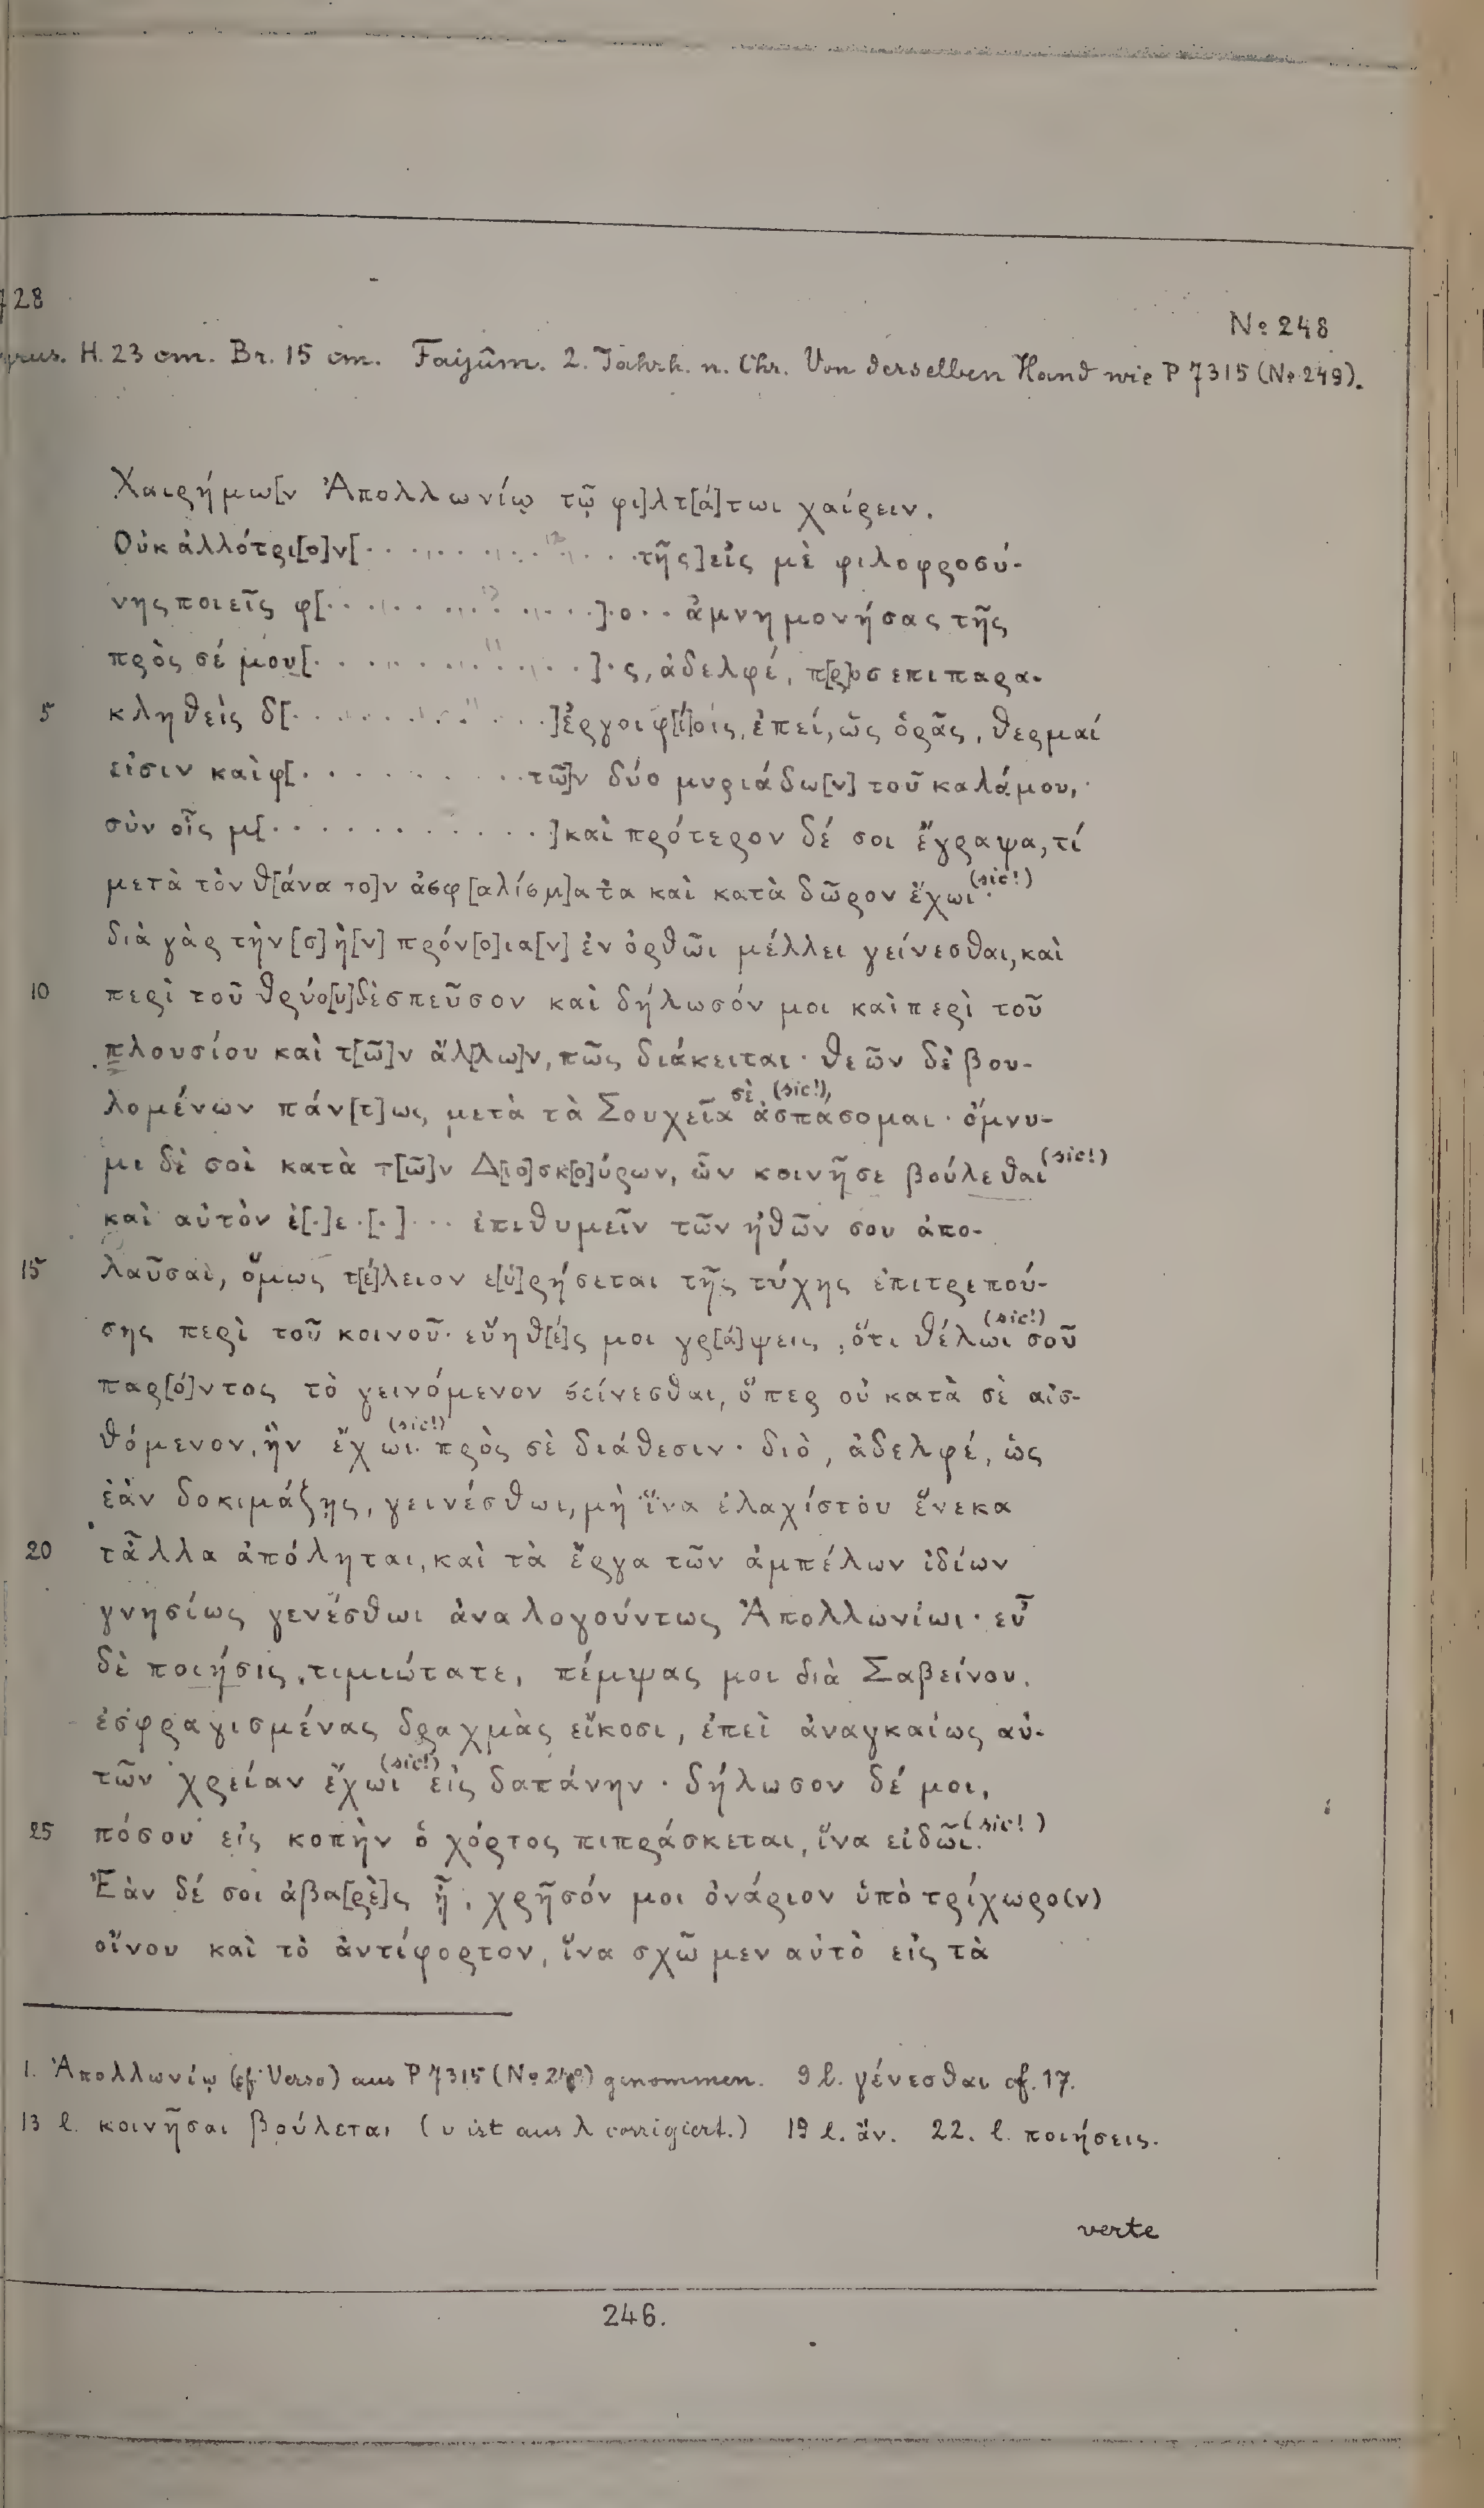 728
No 248
H. 23 cm. Br. 15 cm. Faijûm. 2. Jahrh. n. Chr. Von derselben Hand wie P 7315 (No 249).
Χαιρήμω[ν Ἀπολλωνίῳ τῷ φι]λτ[ά]τωι χαίρειν.
Οὐκ ἀλλότρι[ο]ν[. . . . . . . . . . . . τῆς] εἰς μὲ φιλοφροσύ-
νης ποιεῖς φ[. . . . . . . . . . . .].ο.. ἀμνημονήσας τῆς
πρὸς σέ μου[. . . . . . . . . . . .].ς, ἀδελφέ, π[ρ]οσεπιπαρα-
5 κληθεὶς δ[. . . . . . . . . . .]ἐργοιφ[ί]οις, ἐπεί, ὡς ὁρᾷς, θερμαί
εἰσιν καὶ φ[. . . . . . . . . τῶ]ν δύο μυριάδω[ν] τοῦ καλάμου,
σὺν οἷς μ[. . . . . . . . . . . .] καὶ πρότερον δέ σοι ἔγραψα, τί
μετὰ τὸν θ[άνατο]ν ἀσφ[αλίσμ]ατα καὶ κατὰ δῶρον ἔχωι (sic!)·
διὰ γὰρ τὴν [σ]ὴ[ν] πρόν[ο]ια[ν] ἐν ὀρθῶι μέλλει γείνεσθαι, καὶ
10 περὶ τοῦ θρύο[υ] δὲ σπεῦσον καὶ δήλωσόν μοι καὶ περὶ τοῦ
πλουσίου καὶ τ[ῶ]ν ἄλ[λω]ν, πῶς διάκειται· θεῶν δὲ βου-
λομένων πάν[τ]ως μετὰ τὰ Σουχεῖα σὲ (sic!) ἀσπάσομαι· ὄμνυ-
μι δὲ σοὶ κατὰ τ[ῶ]ν Δ[ιο]σκ[ο]ύρων, ὧν κοινῆσε βούλεθαι (sic!)
καὶ αὐτὸν ἐ[.]ε.[.]... ἐπιθυμεῖν τῶν ἠθῶν σου ἀπο-
15 λαῦσαι, ὅμως τ[έ]λειον ε[ὑ]ρήσεται τῆς τύχης ἐπιτρεπού-
σης περὶ τοῦ κοινοῦ· εὔηθ[ε]ς μοι γρ[ά]ψεις, ὅτι θέλωι (sic!) σοῦ
παρ[ό]ντος τὸ γεινόμενον γείνεσθαι, ὅπερ οὐ κατὰ σὲ αἰσ-
θόμενον, ἣν ἔχωι (sic!) πρὸς σὲ διάθεσιν· διὸ, ἀδελφέ, ὡς
ἐὰν δοκιμάζῃς, γεινέσθωι, μὴ ἵνα ἐλαχίστου ἕνεκα
20 τἆλλα ἀπόληται, καὶ τὰ ἔργα τῶν ἀμπέλων ἰδίων
γνησίως γενέσθωι ἀναλογούντως Ἀπολλωνίωι· εὖ
δὲ ποιήσις, τιμιώτατε, πέμψας μοι διὰ Σαβείνου
ἐσφραγισμένας δραχμὰς εἴκοσι, ἐπεὶ ἀναγκαίως αὐ-
τῶν χρείαν ἔχωι (sic!) εἰς δαπάνην· δήλωσον δέ μοι,
25 πόσου εἰς κοπὴν ὁ χόρτος πιπράσκεται, ἵνα εἰδῶι (sic!).
Ἐὰν δέ σοι ἀβα[ρὲ]ς ᾖ, χρῆσόν μοι ὀνάριον ὑπὸ τρίχωρο(ν)
οἴνου καὶ τὸ ἀντίφορτον, ἵνα σχῶμεν αὐτὸ εἰς τὰ
1. Ἀπολλωνίῳ (cf. Verso) aus P 7315 (No 249) genommen. 9 l. γένεσθαι cf. 17.
13 l. κοινῆσαι βούλεται (υ ist aus λ corrigiert.) 19 l. ἄν. 22. l. ποιήσεις.
verte
246.